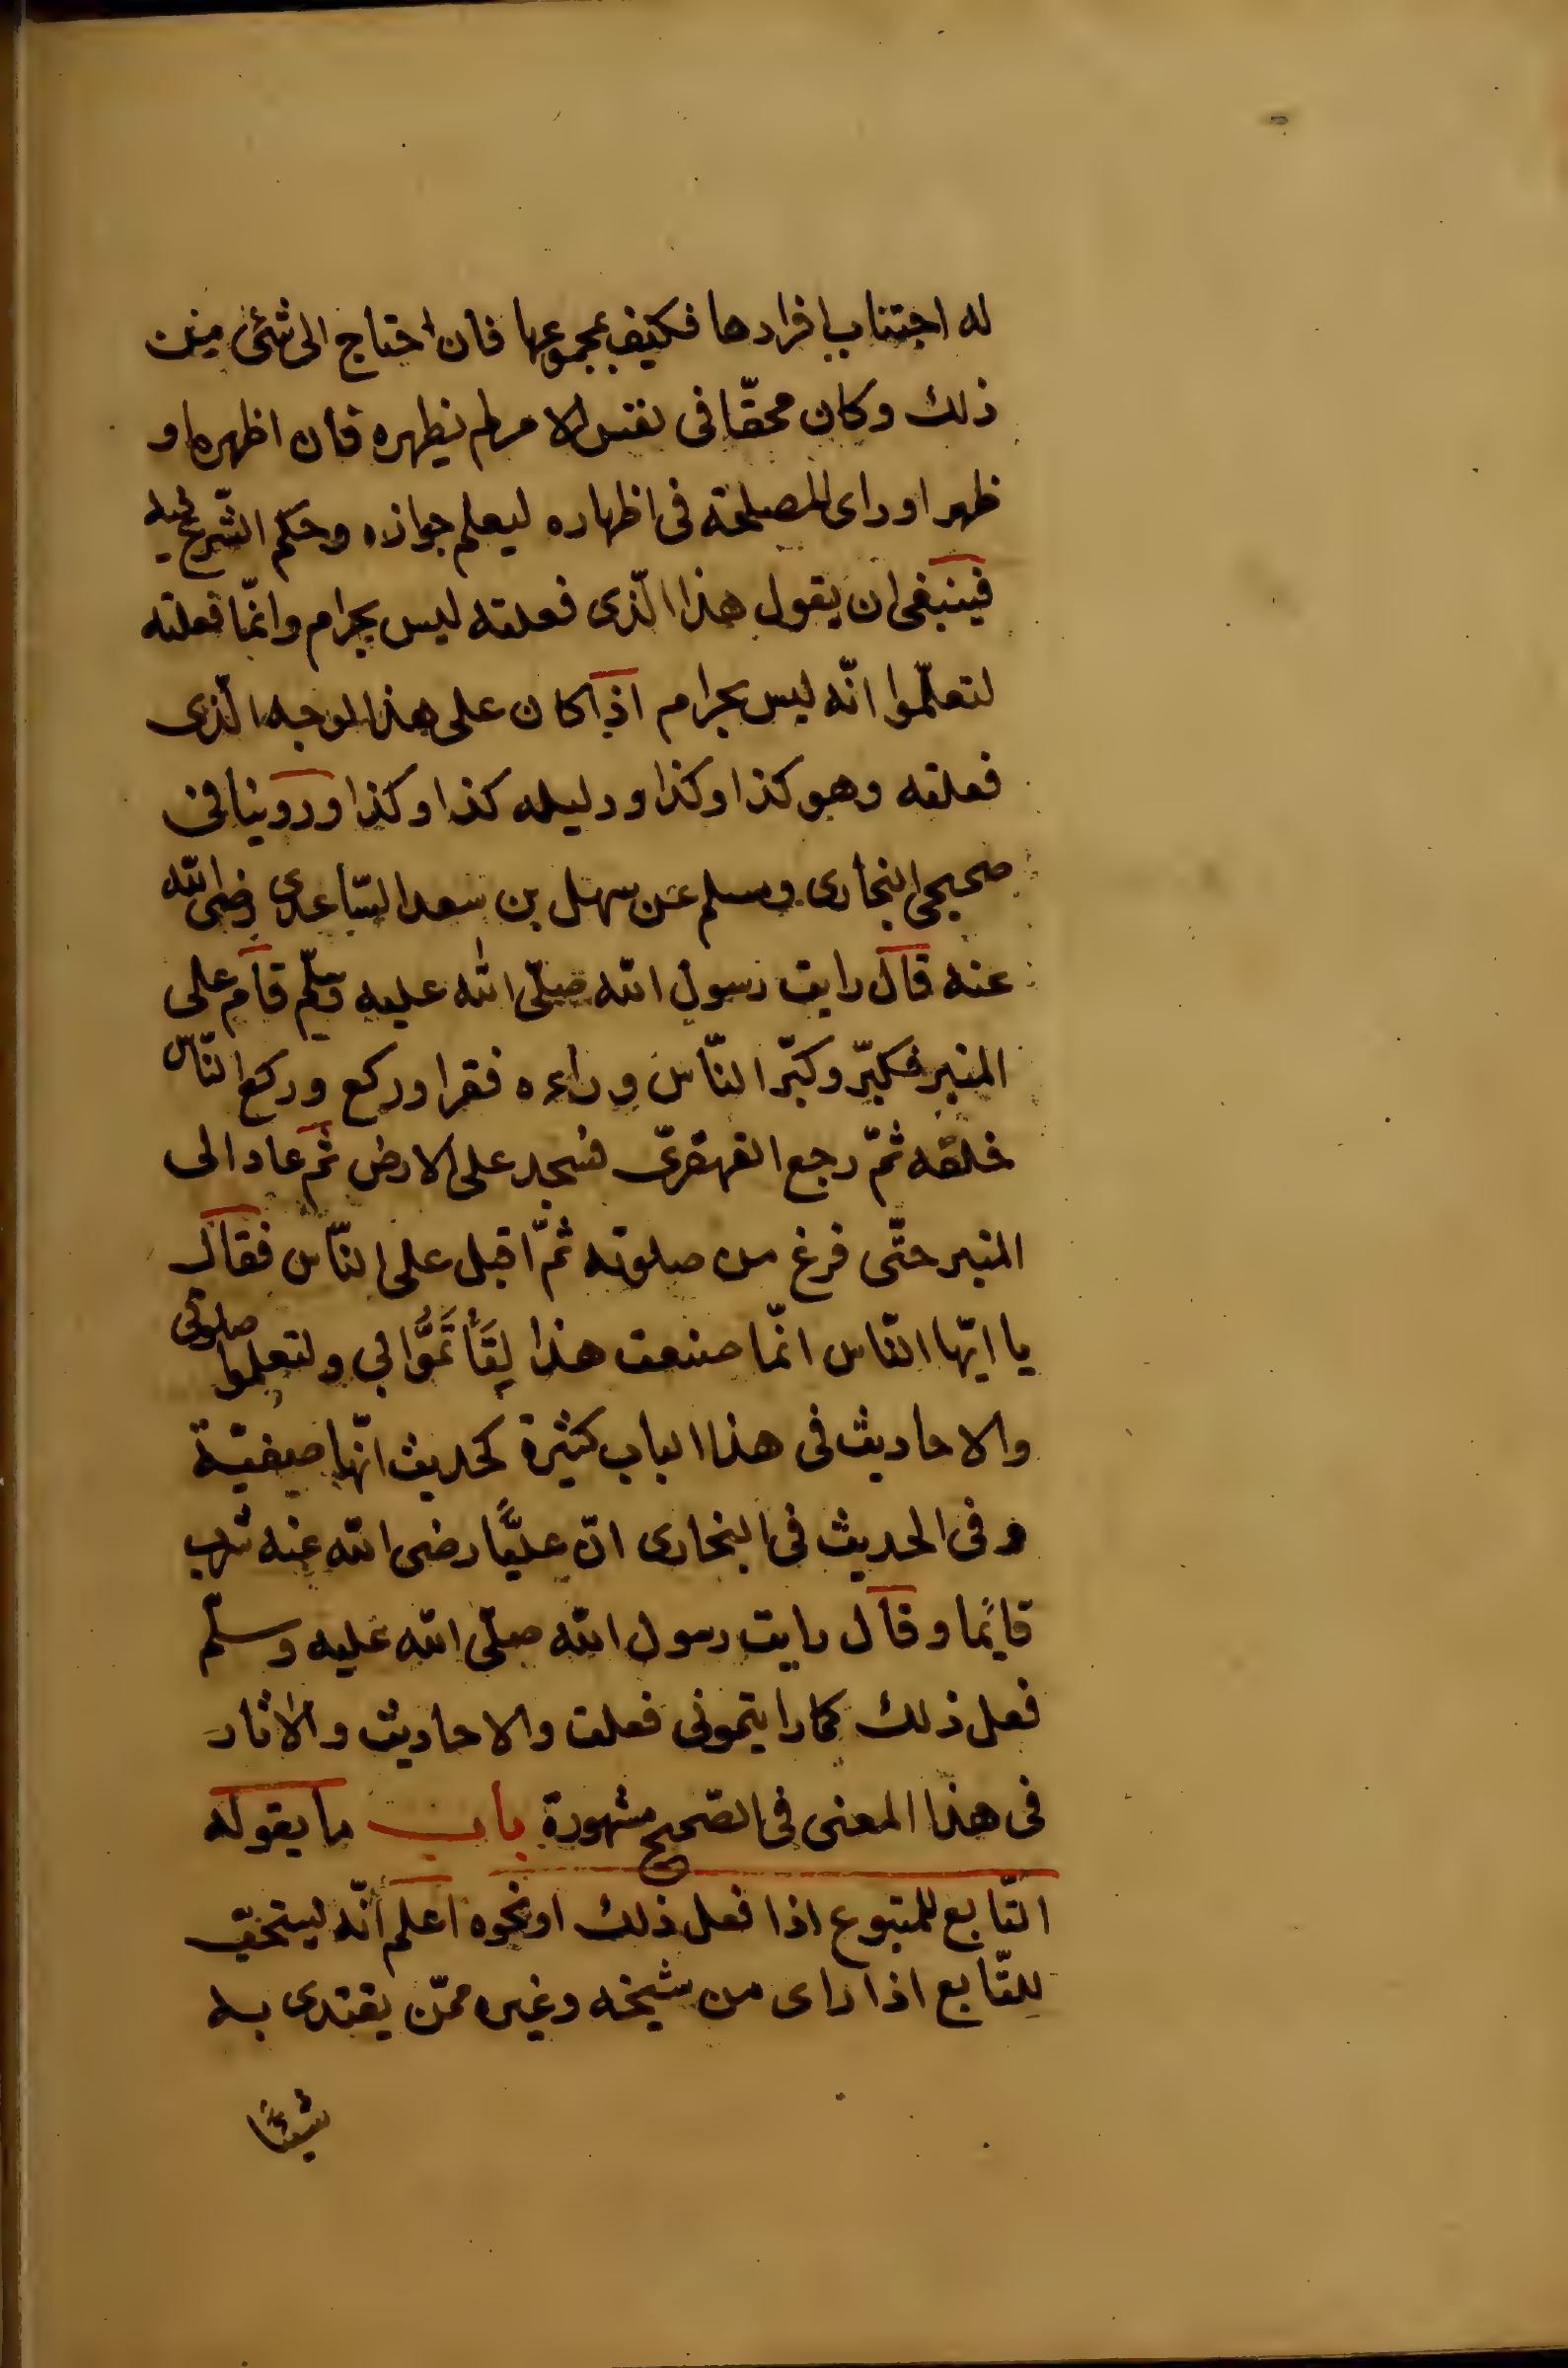 له اجتناب افرادها فكيف بمجموعها فان احتاج الى شئ من
ذلك وكان محقّا فى نفس الامر لم يظهره فان اظهره او
ظهر او راى المصلحة فى اظهاره ليعلم جوازه وحكم الشّرع فيه
فينبغى ان يقول هذا الّذى فعلته ليس بحرام وانّما فعلته
لتعلّموا انّه ليس بحرام اذا كان على هذا الوجه الّذى
فعلته وهو كذا وكذا ودليله كذا وكذا وروينا فى
صحيحى البخارى ومسلم عن سهل بن سعد السّاعدى رضى الله
عنه قال رايت رسول الله صلّى الله عليه وسلّم قام على
المنبر فكبّر وكبّر النّاس وراءه فقرا وركع وركع النّاس
خلفه ثمّ رجع القهقرىّ فسجد على الارض ثمّ عاد الى
المنبر حتّى فرغ من صلوته ثمّ اقبل على النّاس فقال
يا ايّها النّاس انّما صنعت هذا لِتَأتَمُّوا بى ولتعلموا صلوتى
والاحاديث فى هذا الباب كثيرة كحديث انّها صفيّة
وفى الحديث فى البخارى انّ عليًّا رضى الله عنه شرب
قايما وقال رايت رسول الله صلّى الله عليه وسلّم
فعل ذلك كما رايتمونى فعلت والاحاديث والاثار
فى هذا المعنى فى الصّحيح مشهورة باب ما يقوله
التّابع للمتبوع اذا فعل ذلك او نحوه اعلم انّه ليستحبّ
للتّابع اذا راى من شيخه وغيره ممّن يقتدى به
شيئًا